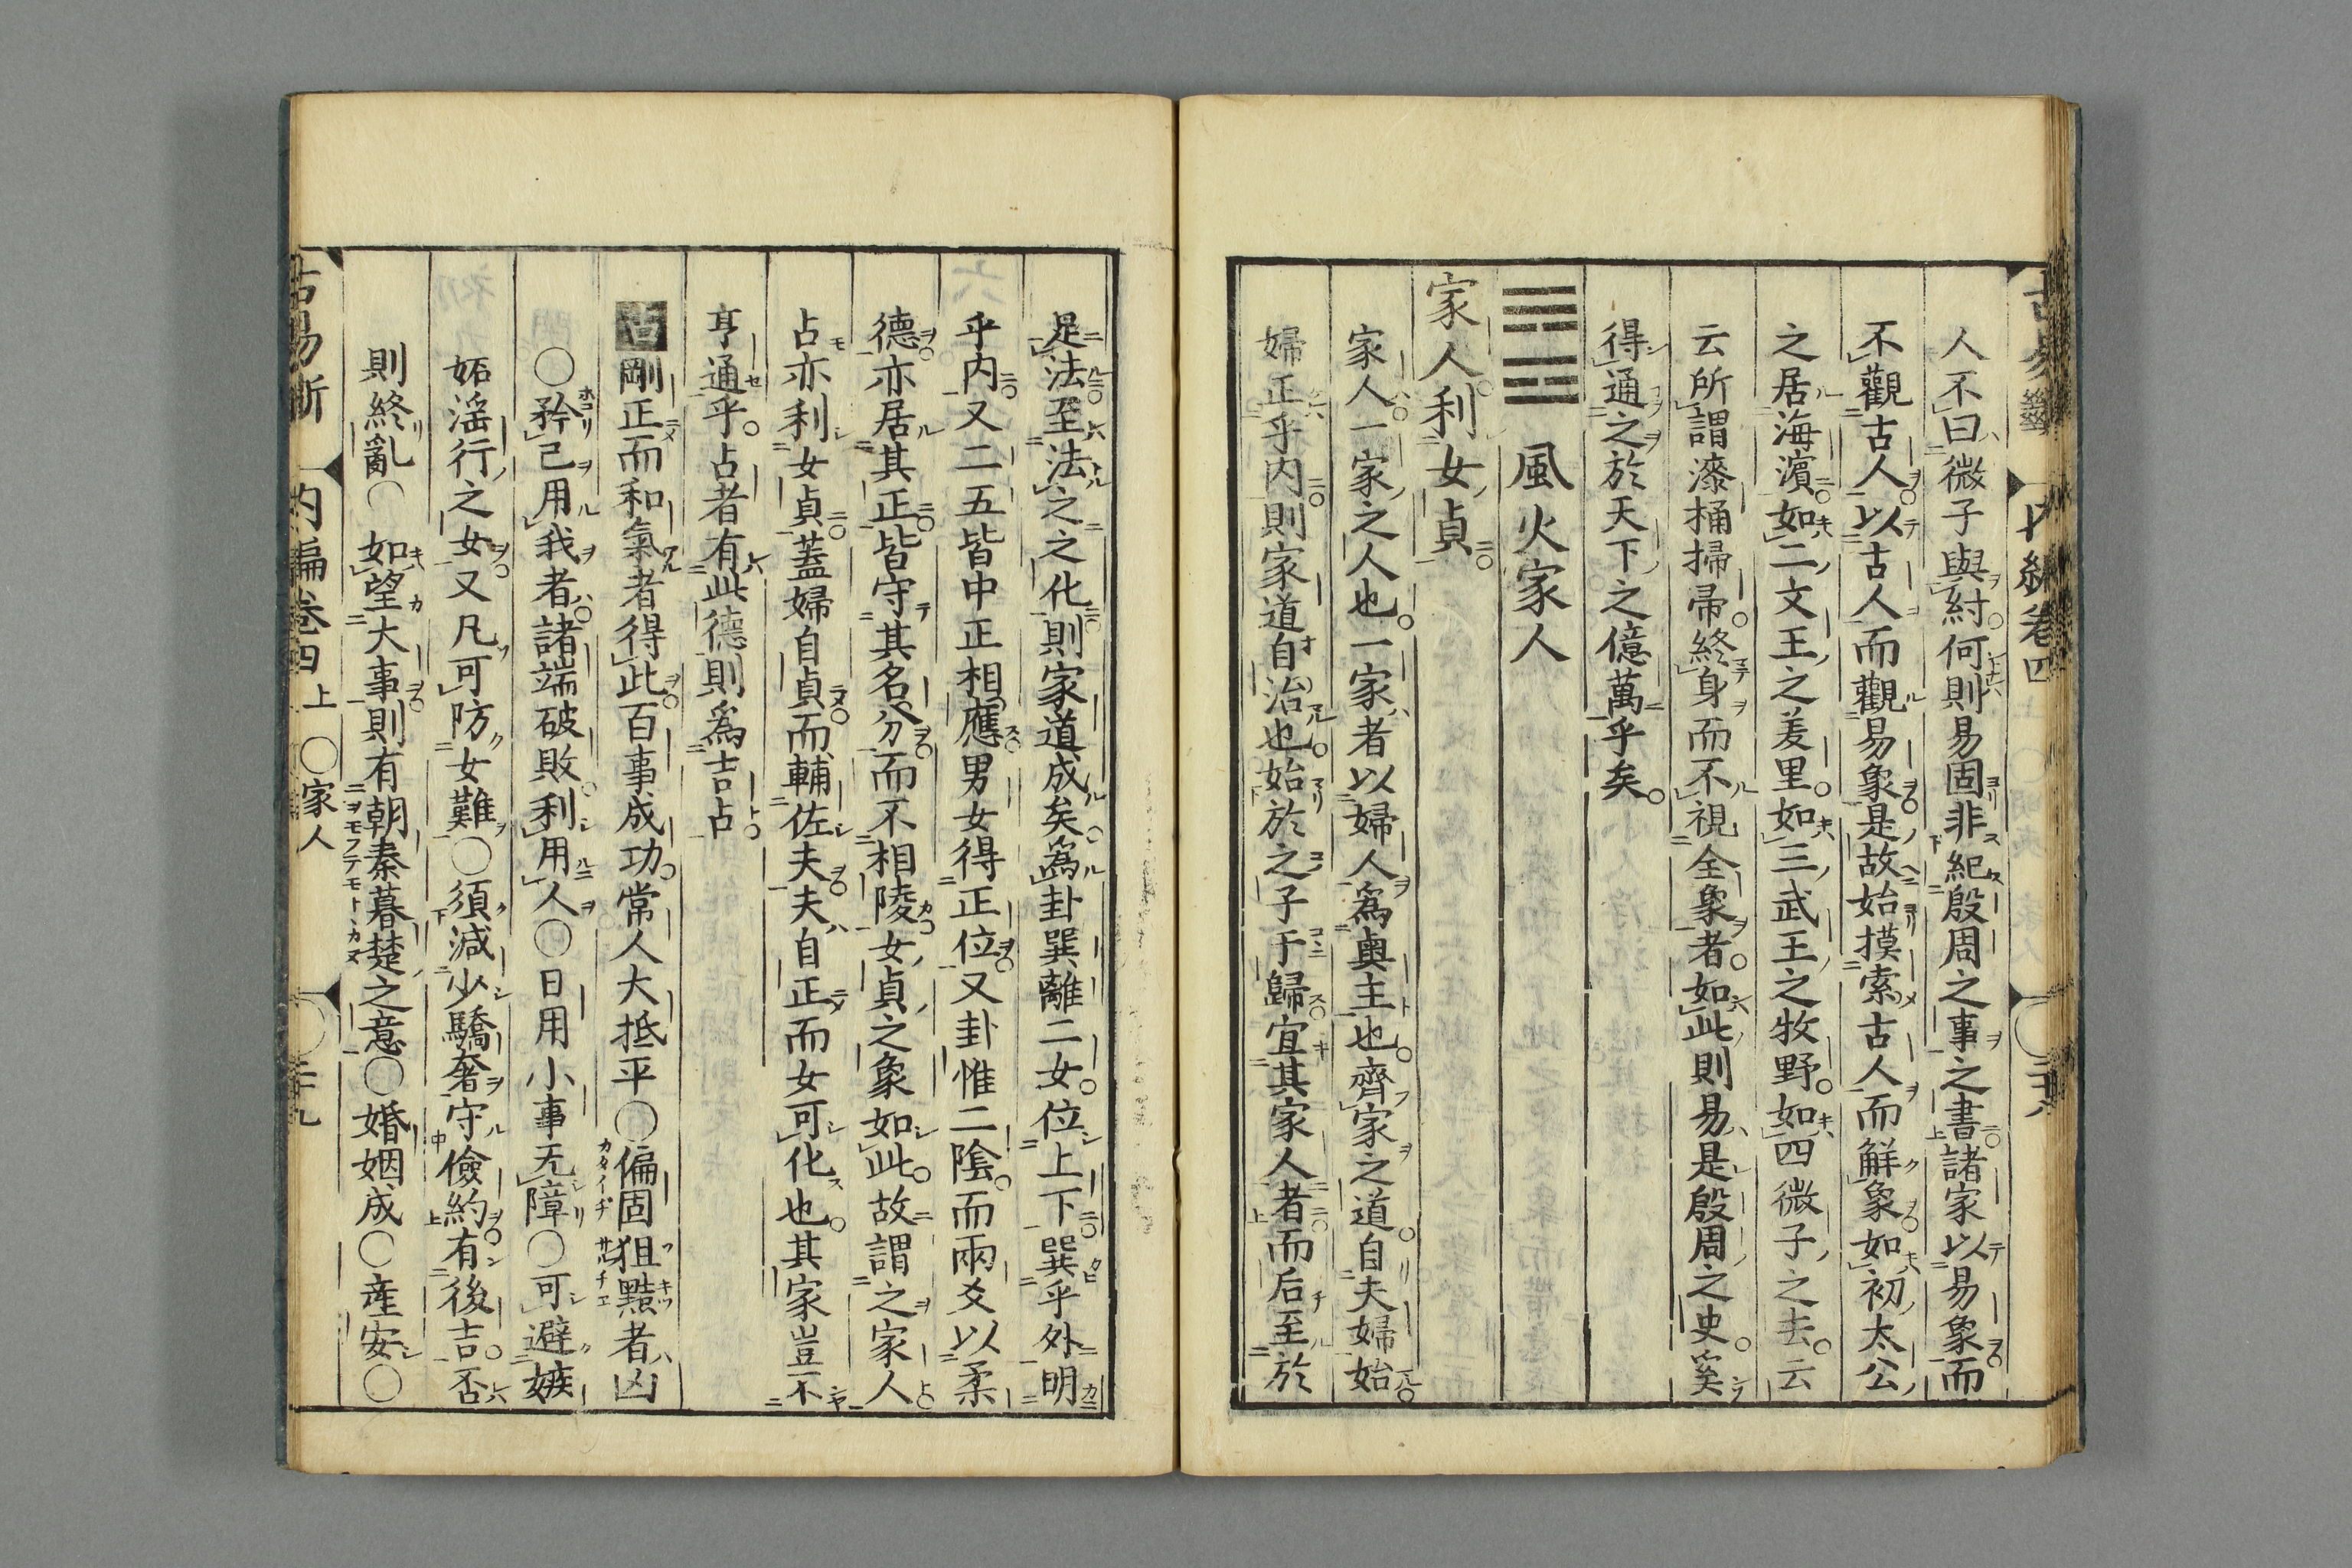 人不曰微子與紂何則易固非紀殷周之事之書諸家以易象而
不觀古人以古人而觀易象是故始摸索古人而解象如初太公
之居海濱如二文王之羑里如三武王之牧野如四微子之去云
云所謂漆桶掃帚終身而不視全象者如此則易是殷周之史奚
得通之於天下之億萬乎矣
風火家人
家人利女貞
家人一家之人也一家者以婦人爲奧主也齊家之道自夫婦始
婦正乎内則家道自治也始於之子于歸宜其家人者而后至於
是法至法之之化則家道成矣爲卦巽離二女位上下巽乎外明
乎内又二五皆中正相應男女得正位又卦惟二陰而兩爻以柔
德亦居其正皆守其名分而不相陵女貞之象如此故謂之家人
占亦利女貞蓋婦自貞而輔佐夫夫自正而女可化也其家豈不
亨通乎占者有此德則爲吉占
占剛正而和氣者得此百事成功常人大抵平○偏固狙黠者凶
○矜己用我者諸端破敗利用人○日用小事无障○可避嫉
妬淫行之女又凡可防女難○須減少驕奢守儉約有後吉否
則終亂○如望大事則有朝秦暮楚之意○婚姻成○産安○
古易斷 内編卷四上 ○家人